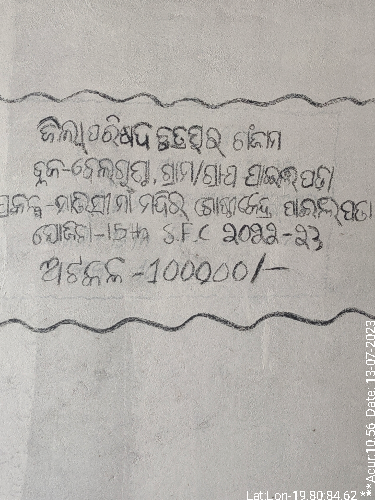 ଜିଲ୍ଲାପରିଷଦ ଛତ୍ରପୁର ଗଂଜାମ
ବ୍ଲକ-ବେଲଗୁଣ୍ଠା, ଗ୍ରାମ/ଗ୍ରାପ ପାଇକପଡ଼ା
ପ୍ରକଳ୍ପ-ମାଉସୀମାଁ ମନ୍ଦିର୍ ଗୋଷ୍ଠୀକେନ୍ଦ୍ର ପାଇକପଡ଼ା
ଯୋଜନା-15th S.F.C ୨୦୨୨-୨୩
ଅଟକଳ -100000/-
Lat Lon-19.80:84.62 *** Acur:10.56 Date: 13-07-2023